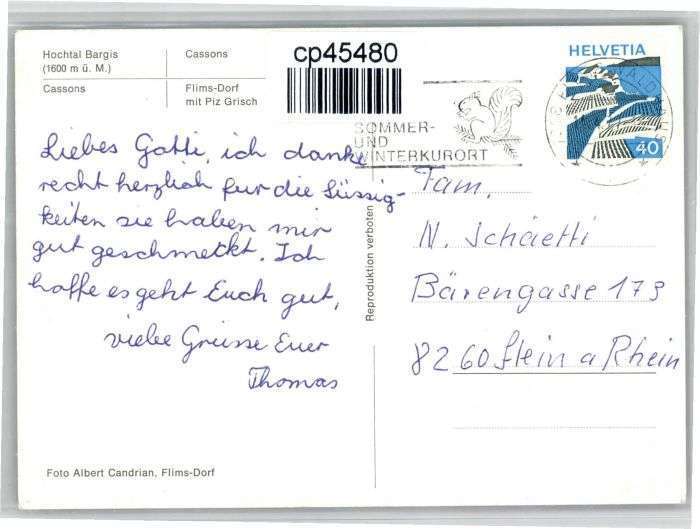 Hochtal Bargis
(1600 m ü. M.)
Cassons
Cassons
Flims-Dorf
mit Piz Grisch
cp45480
HELVETIA
40
SOMMER-
UND
WINTERKURORT
Liebes Gotti, ich danke
recht herzlich für die Süssig-
keiten sie haben mir
gut geschmeckt. Ich
hoffe es geht Euch gut,
viele Grüsse Euer
Thomas
Reproduktion verboten
Fam.
N. Schäetti
Bärengasse 173
8260 Stein a Rhein
Foto Albert Candrian, Flims-Dorf